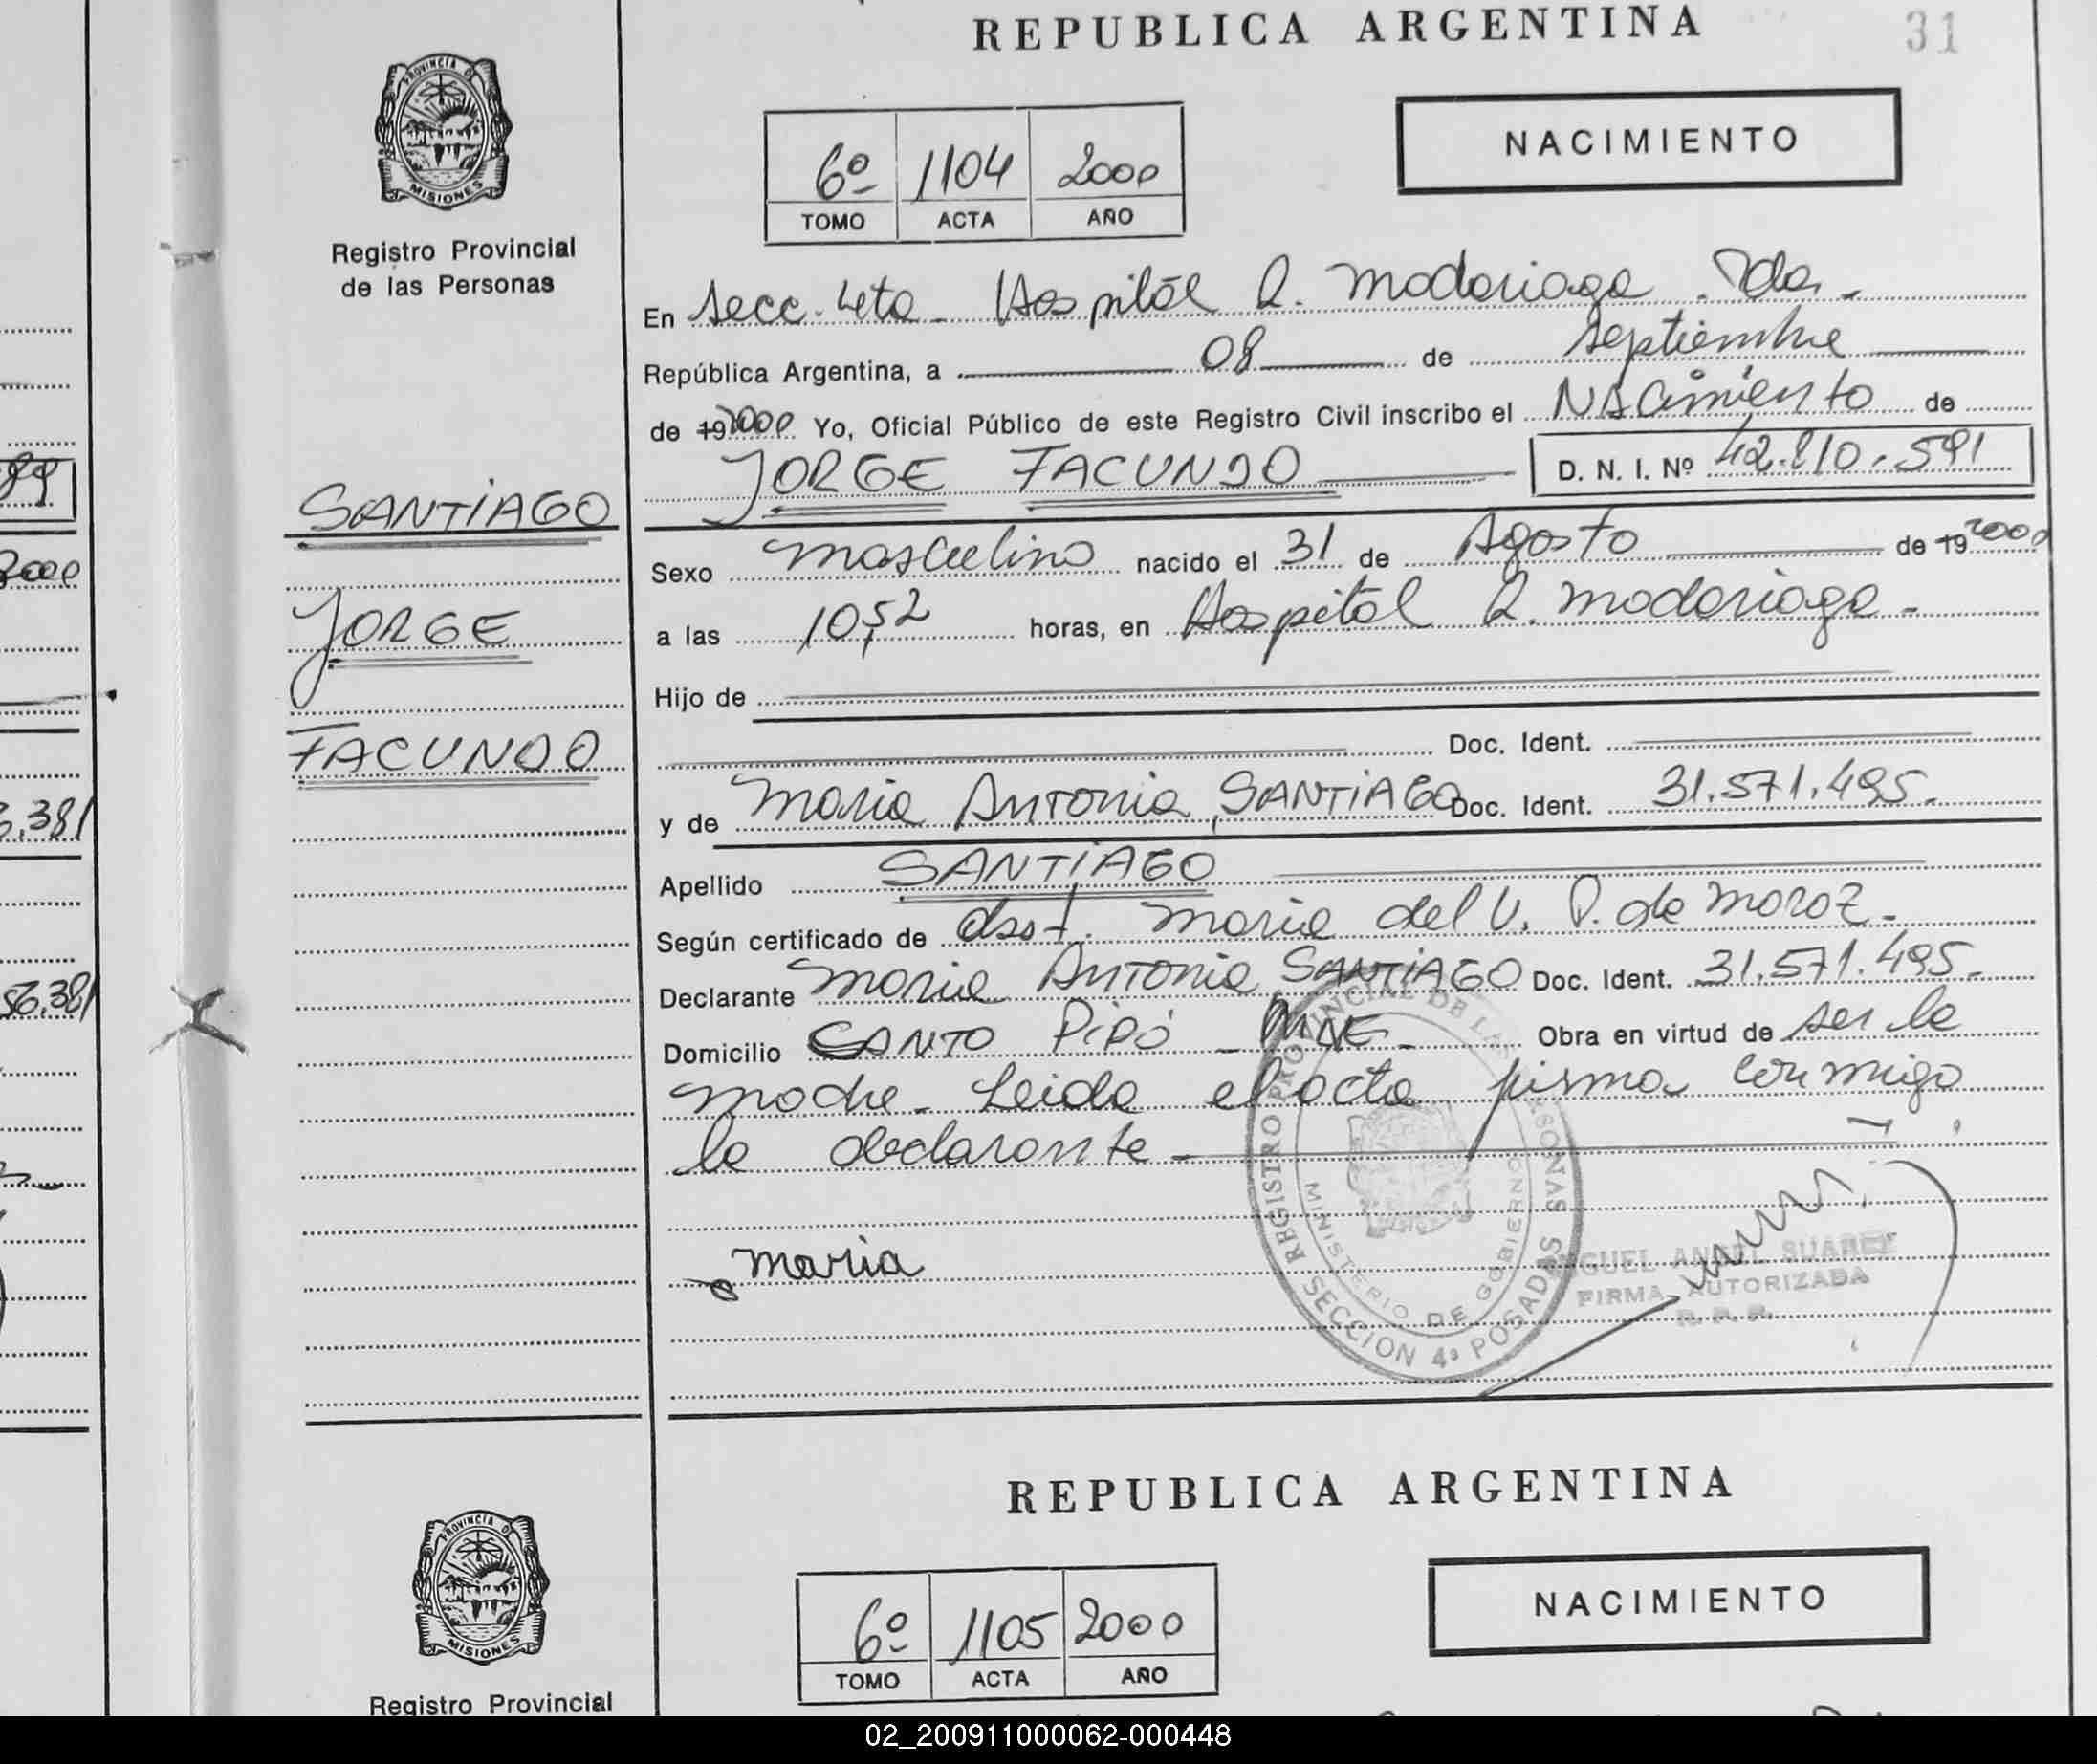 REPUBLICA ARGENTINA
31
PROVINCIA DE
MISIONES
Registro Provincial
de las Personas
6º 1104 2000
TOMO ACTA AÑO
NACIMIENTO
En Secc. 4ta - Hospital R. Madariaga. Pdas. -
República Argentina, a 08 de septiembre
de 19 2000 Yo, Oficial Público de este Registro Civil inscribo el NAcimiento de
JORGE FACUNDO D. N. I. Nº 42.810.591
SANTIAGO
JORGE
FACUNDO
Sexo masculino nacido el 31 de Agosto de 19 2000
a las 10,52 horas, en Hospital R. Madariaga -
Hijo de
Doc. Ident.
y de Maria Antonia, SANTIAGO Doc. Ident. 31.571.495.-
Apellido SANTIAGO
Según certificado de obst. Maria del V. P. de Moroz -
Declarante Maria Antonia SANTIAGO Doc. Ident. 31.571.495.-
Domicilio SANTO PIPÓ - MNE - Obra en virtud de ser la
madre - Leida el acta firma conmigo
la declarante -
maria
REGISTRO PROVINCIAL DE LAS PERSONAS
MINISTERIO DE GOBIERNO
SECCION 4ª POSADAS
MIGUEL ANGEL SUAREZ
FIRMA AUTORIZADA
R. P. P.
89
2000
381
56.381
REPUBLICA ARGENTINA
PROVINCIA DE
MISIONES
Registro Provincial
6º 1105 2000
TOMO ACTA AÑO
NACIMIENTO
02_200911000062-000448